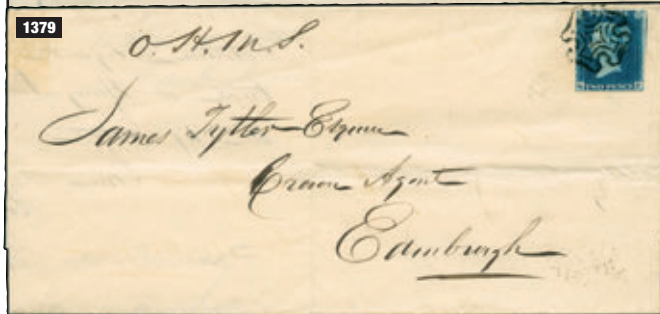 1379
O. H. M. S.
James Tytler Esquire
Crown Agent
Edinburgh
TWO PENCE